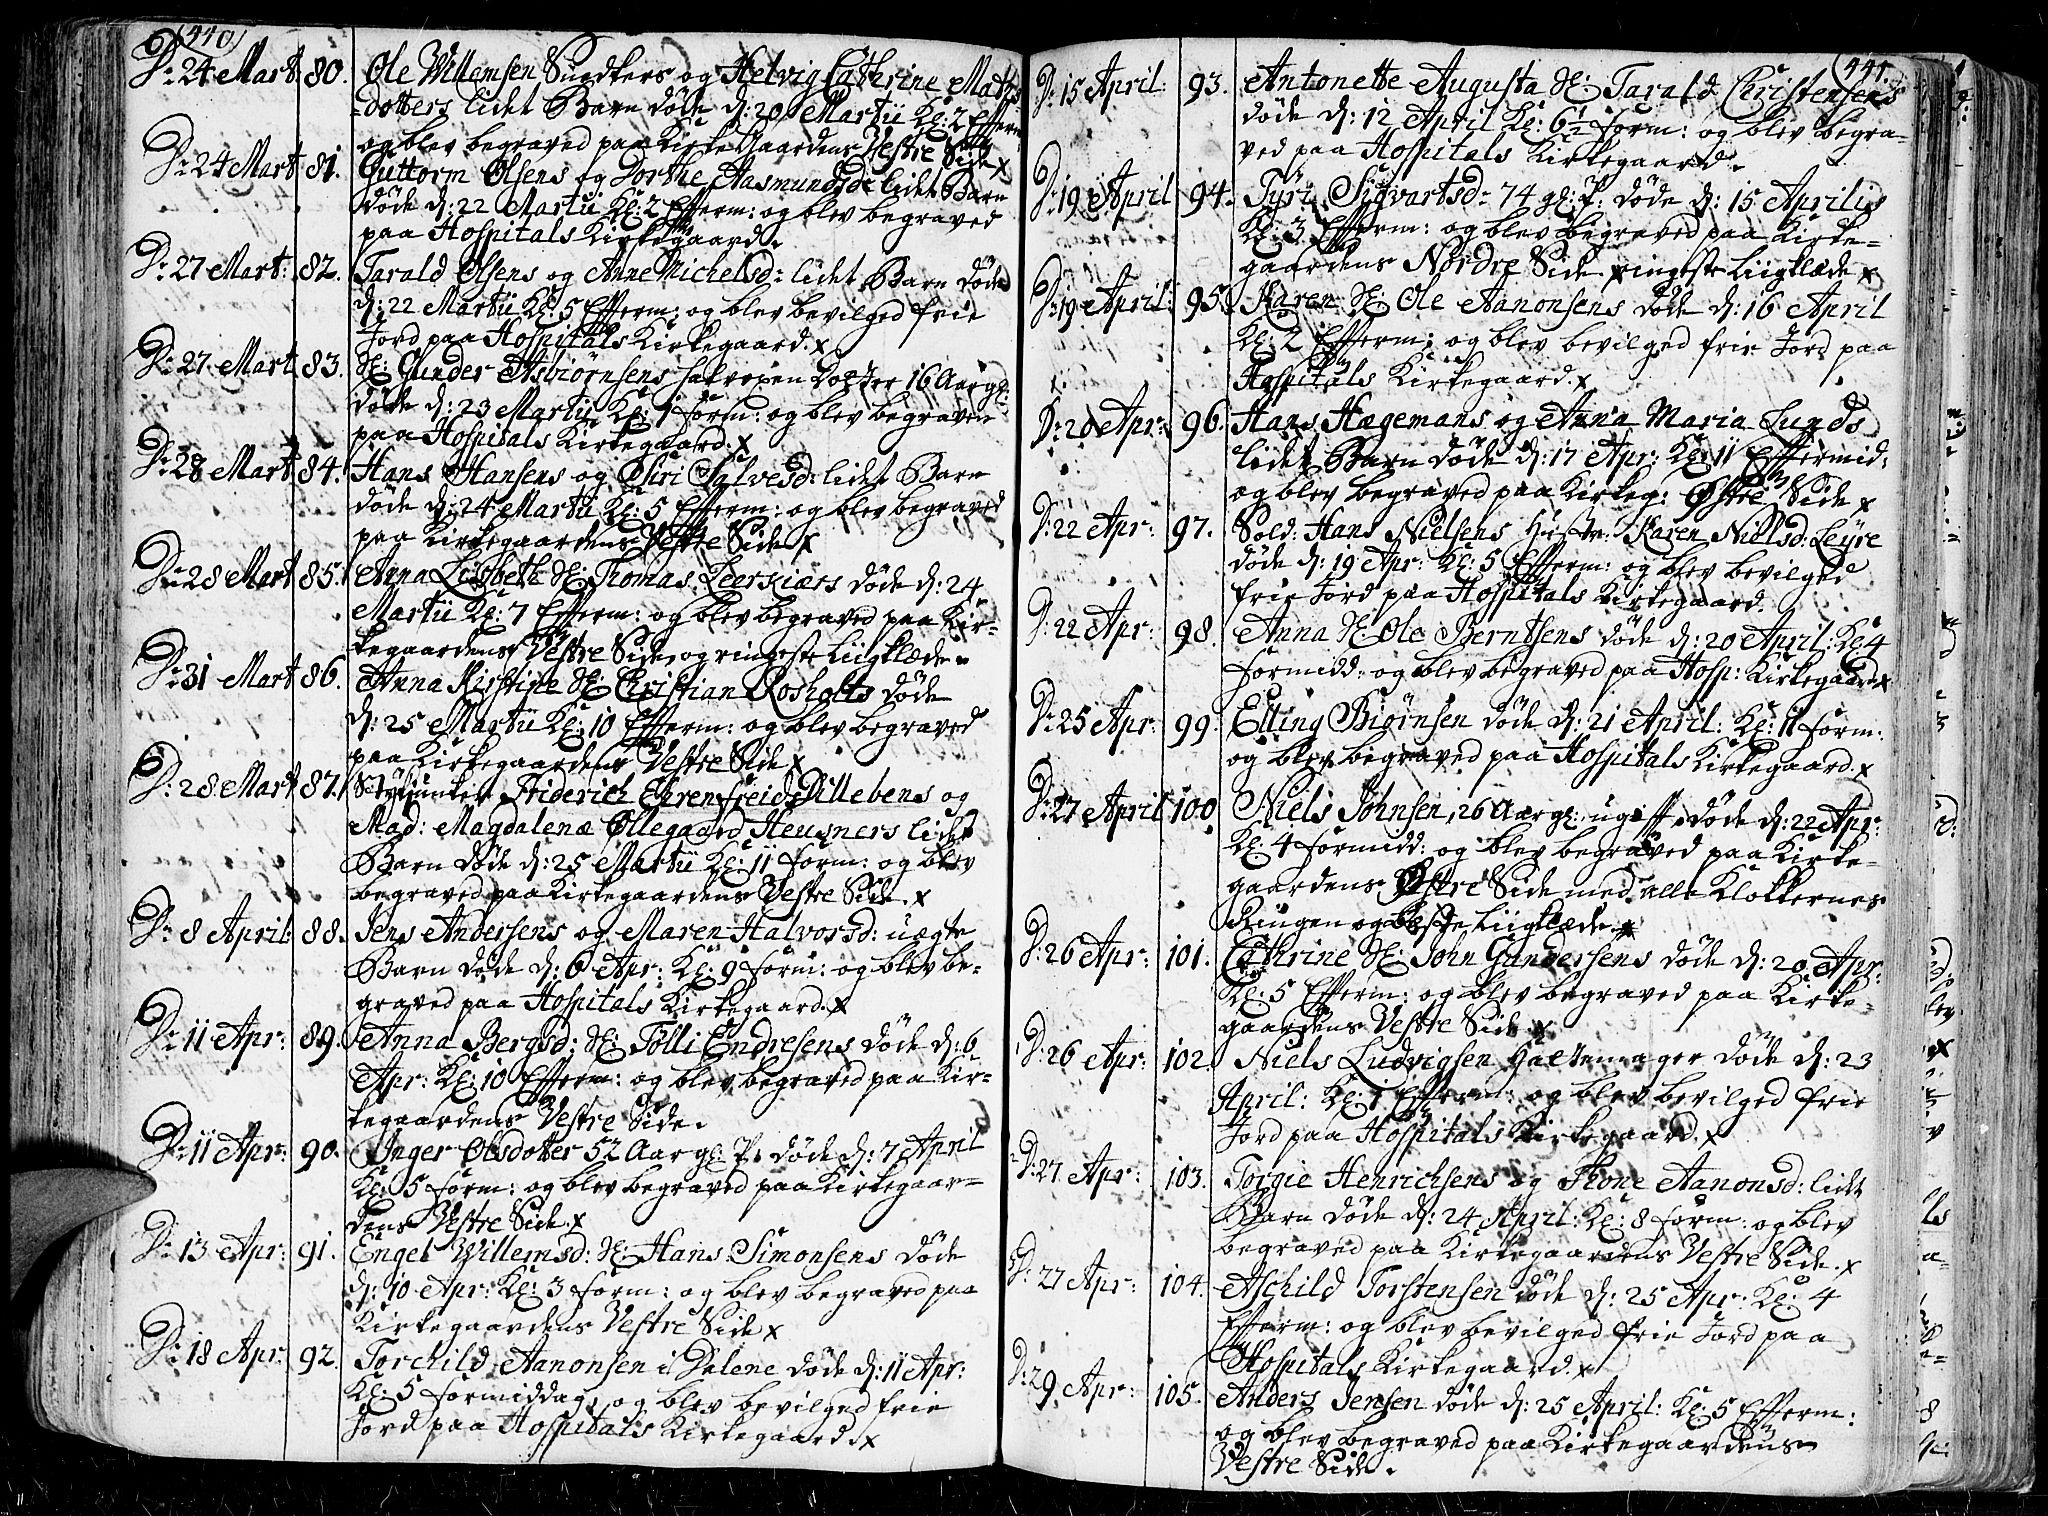 (440)
D: 24 Mart 80. Ole Willemsen Suedkers og Helvig Cathrine Mats
-dotters lidet Barn døde d: 20 Martii Kl: 2 Efferm
og blev begraved paa Kirke Gaardens Vestre Side x
D: 24 Mart 81. Guttorm Olsens og Dorthe Aasmundsd: lidet Barn
døde d: 22 Martii Kl: 2 Efferm: og blev begraved
paa Hospitals Kirkegaard.
D: 27 Mart: 82. Tarald Olsens og Anne Michelsd: lidet Barn døde
d: 22 Martii Kl: 5 Efferm: og blev bevilged frie
Jord paa Hospitals Kirkegaard. x
D: 27 Mart 83. Sl: Gunder Asbiørnsens Dotter 16 Aar gl:
døde d: 23 Martii Kl: 1 form: og blev begraven
paa Hospitals Kirkegaard. x
D: 28 Mart 84. Hans Hansens og Siri Salvesd: lidet Barn
døde d: 24 Martii Kl: 5 Efferm: og blev begraved
paa Kirkegaardens Vestre Side x
D: 28 Mart 85. Anna Lisbeth Sl: Thomas Leerskiærs døde d: 24
Martii Kl: 7 Efferm: og blev begraved paa Kir-
kegaardens Vestre Side, og ringeste Liigklæde
D: 31 Mart 86. Anna Kirstine Sl: Christian Rosholts døde
d: 25 Martii Kl: 10 Efferm: og blev begraved
paa Kirkegaardens Vestre Side x
D: 28 Mart 87. Friderich Ehrenfreid Dillebens og
Mad: Magdalenæ Øllegaard Heusners lidet
Barn døde d: 25 Martii Kl: 11 form: og blev
begraved paa Kirkegaardens Vestre Side. x
D: 8 April: 88. Jens Andersens og Maren Halvorsd: uægte
Barn døde d: 6 Apr: Kl: 9 form: og blev be-
graved paa Hospitals Kirkegaard. x
D: 11 Apr: 89. Anna Bergsd: Sl: Tølli Endresens døde d: 6
Apr: Kl: 10 Efferm: og blev begraved paa Kir-
kegaardens Vestre Side.
D: 11 Apr: 90. Inger Olsdotter 52 Aar gl: P: døde d: 7 April
Kl: 5 form: og blev begraved paa Kirkegaar-
dens Vestre Side. x
D: 13 Apr: 91. Engel Willemsd: Sl: Hans Simonsens døde
d: 10 Apr: Kl: 3 form: og blev begraved paa
Kirkegaardens Vestre Side x
D: 18 Apr: 92. Torchild Aanonsen i Dalene døde d: 11 Apr:
Kl: 5 formiddag, og blev bevilged frie
Jord paa Hospitals Kirkegaard. x
(441.)
D: 15 April: 93. Antonette Augusta Sl: Tarald Christensens
døde d: 12 April Kl: 6½ form: og blev begra-
ved paa Hospitals Kirkegaard.
D: 19 April 94. Tyri Sigvartsd: 74 gl: P: døde d: 15 Aprilis
Kl: 3 Efferm: og blev begraved paa Kirke-
gaardens Nordre Side x ringeste Liigklæde x
D: 19 April: 95. Karen Sl: Ole Aanonsens døde d: 16 April
Kl: 2 Efferm: og blev bevilged frie Jord paa
Hospitals Kirkegaard. x
D: 20 Apr: 96. Hans Hagemans og Anna Maria Lunds
lidet Barn døde d: 17 Apr: Kl: 11 Effermid:
og blev begraved paa Kirkeg: Østre Side x
D: 22 Apr: 97. Sold: Hans Nielsens Hustr: Karen Nielsd: Leyre
døde d: 19 Apr: Kl: 5 Efferm: og blev bevilged
frie Jord paa Hospitals Kirkegaard.
D: 22 Apr: 98. Anna Sl: Ole Berntsens døde d: 20 April: Kl: 4
formidd: og blev begraved paa Hosp: Kirkegaard x
D: 25 Apr: 99. Elling Biørnsen døde d: 21 April: Kl: 11 form:
og blev begraved paa Hospitals Kirkegaard. x
D: 27 April 100. Niels Johnsen, 26 Aar gl: ugift, døde d: 22 Apr:
Kl: 4 formidd: og blev begraved paa Kirke-
gaardens Østre Side med alle Klokkernes
Ringen og beste Liigklæde. x
D: 26 Apr: 101. Cathrine Sl: John Gundersens døde d: 20 Apr:
Kl: 5 Efferm: og blev begraved paa Kirke-
gaardens Vestre Side x
D: 26 Apr: 102. Niels Ludvigsen Hattemager døde d: 23
April: Kl: 1 Efferm: og blev bevilged frie
Jord paa Hospitals Kirkegaard. x
D: 27 Apr: 103. Torgie Henrichsens og Tone Aanonsd: lidet
Barn døde d: 24 April: Kl: 8 form: og blev
begraved paa Kirkegaardens Vestre Side. x
D: 27 Apr: 104. Aschild Torstensen døde d: 25 Apr: Kl: 4
Efferm: og blev bevilged frie Jord paa
Hospitals Kirkegaard. x
D: 29 Apr: 105. Anders Jensen døde d: 25 April: Kl: 5 Efferm:
og blev begraved paa Kirkegaardens
Vestre Side.